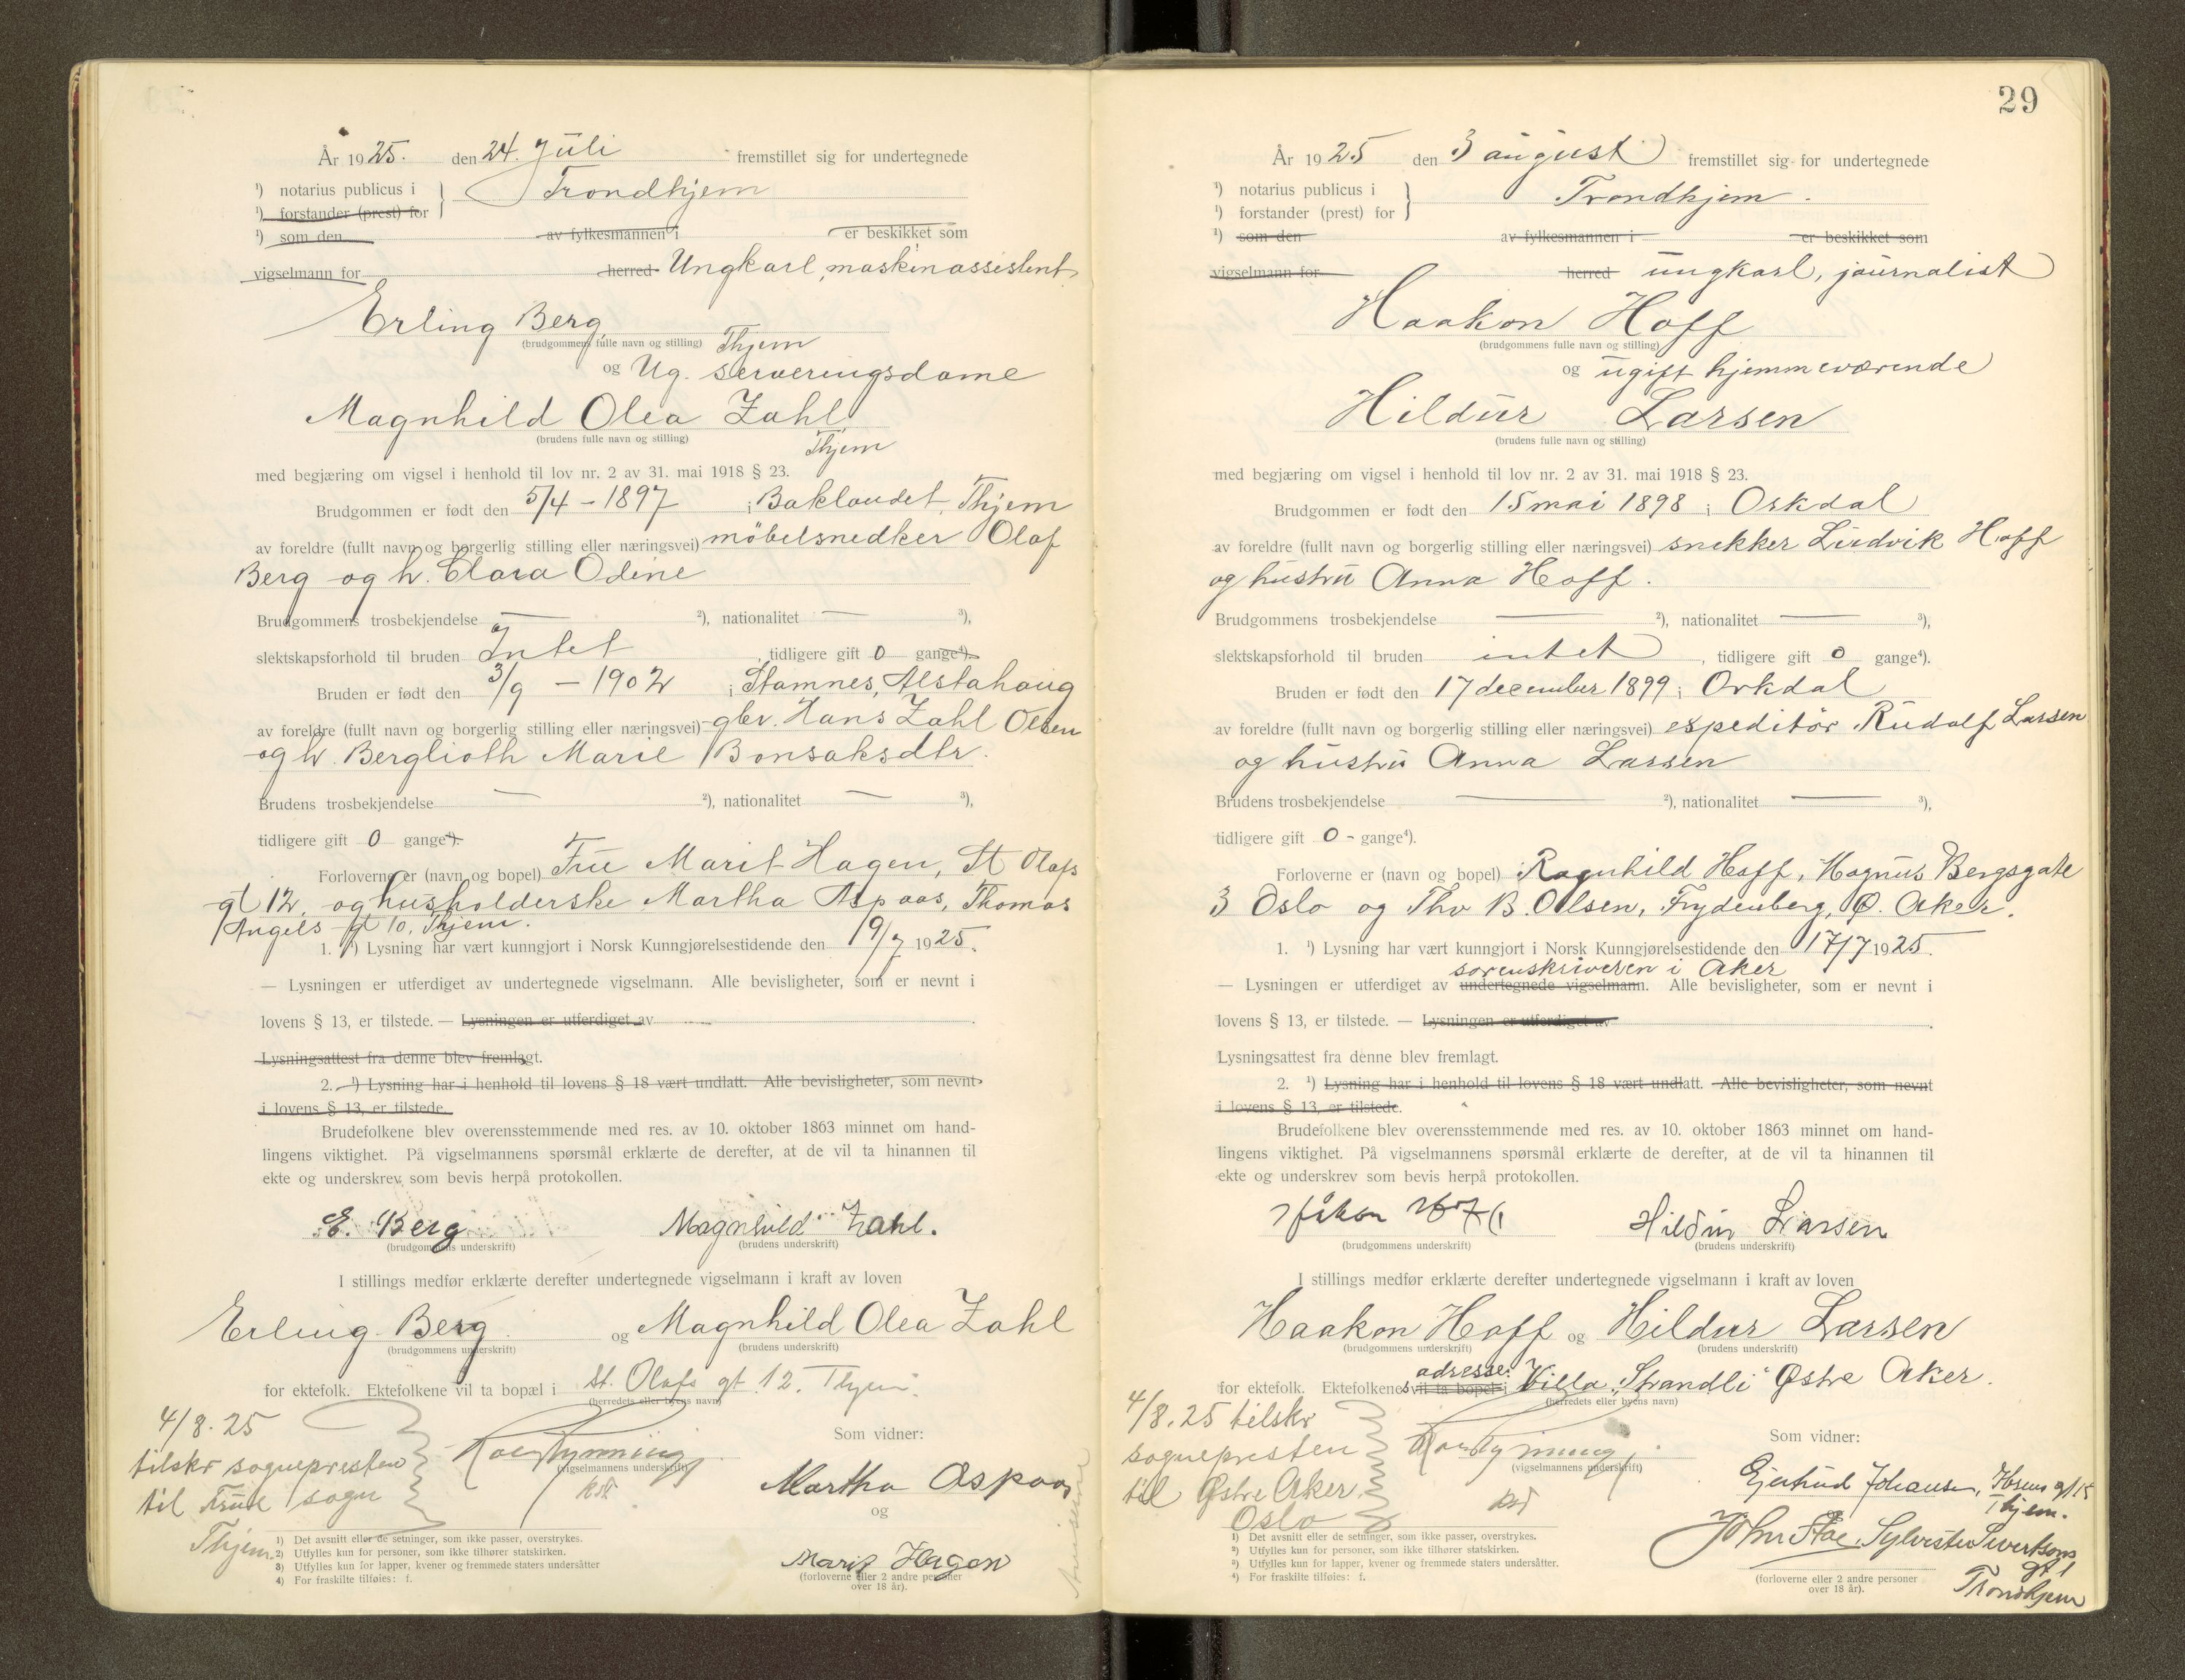 År 1925. den 24. Juli fremstillet sig for undertegnede
¹) notarius publicus i } Trondhjem
¹) forstander (prest) for
¹) som den av fylkesmannen i er beskikket som
vigselmann for herred Ungkarl, maskinassistent
Erling Berg,
(brudgommens fulle navn og stilling) Thjem
og Ug. serveringsdame
Magnhild Olea Zahl
(brudens fulle navn og stilling) Thjem
med begjæring om vigsel i henhold til lov nr. 2 av 31. mai 1918 § 23.
Brudgommen er født den 5/4 - 1897 i Baklandet, Thjem
av foreldre (fullt navn og borgerlig stilling eller næringsvei) möbelsnedker Olaf
Berg og h. Clara Odine
Brudgommens trosbekjendelse — ²), nationalitet — ³),
slektskapsforhold til bruden Intet, tidligere gift 0 gange⁴).
Bruden er født den 3/9 - 1902 i Stamnes, Alstahaug
av foreldre (fullt navn og borgerlig stilling eller næringsvei) gbr. Hans Zahl Olsen
og h. Berglioth Marie Bonsaksdtr.
Brudens trosbekjendelse — ²), nationalitet — ³),
tidligere gift 0 gange⁴).
Forloverne er (navn og bopel) Frue Marit Hagen, St Olafs
gt 12, og husholderske Martha Aspaas, Thomas
Angels gt 10, Thjem.
1. ¹) Lysning har vært kunngjort i Norsk Kunngjørelsestidende den 19/7 1925.
— Lysningen er utferdiget av undertegnede vigselmann. Alle bevisligheter, som er nevnt i
lovens § 13, er tilstede. — Lysningen er utferdiget av
Lysningsattest fra denne blev fremlagt.
2. ¹) Lysning har i henhold til lovens § 18 vært undlatt. Alle bevisligheter, som nevnt
i lovens § 13, er tilstede.
Brudefolkene blev overensstemmende med res. av 10. oktober 1863 minnet om hand-
lingens viktighet. På vigselmannens spørsmål erklærte de derefter, at de vil ta hinannen til
ekte og underskrev som bevis herpå protokollen.
E. Berg Magnhild Zahl.
(brudgommens underskrift) (brudens underskrift)
I stillings medfør erklærte derefter undertegnede vigselmann i kraft av loven
Erling Berg og Magnhild Olea Zahl
(brudgommens underskrift) (brudens underskrift)
for ektefolk. Ektefolkene vil ta bopæl i St. Olafs gt 12. Thjem.
(herredets eller byens navn)
4/8. 25
tilskr sognepresten
til Frue sogn
Thjem.
(vigselmannens underskrift)
Som vidner:
Martha Aspaas
og
Marit Hagen
(forloverne eller 2 andre personer
over 18 år).
1) Det avsnitt eller de setninger, som ikke passer, overstrykes.
2) Utfylles kun for personer, som ikke tilhører statskirken.
3) Utfylles kun for lapper, kvener og fremmede staters undersåtter
4) For fraskilte tilføies: f.
29
År 1925 den 3 august fremstillet sig for undertegnede
¹) notarius publicus i } Trondhjem.
¹) forstander (prest) for
¹) som den av fylkesmannen i er beskikket som
vigselmann for herred ungkarl, journalist
Haakon Hoff
(brudgommens fulle navn og stilling)
og ugift hjemmeværende
Hildur Larsen
(brudens fulle navn og stilling)
med begjæring om vigsel i henhold til lov nr. 2 av 31. mai 1918 § 23.
Brudgommen er født den 15 mai 1898 i Orkdal
av foreldre (fullt navn og borgerlig stilling eller næringsvei) snekker Ludvik Hoff
og hustru Anna Hoff.
Brudgommens trosbekjendelse — ²), nationalitet — ³),
slektskapsforhold til bruden intet, tidligere gift 0 gange⁴).
Bruden er født den 17 december 1899 i Orkdal
av foreldre (fullt navn og borgerlig stilling eller næringsvei) espeditör Rudolf Larsen
og hustru Anna Larsen
Brudens trosbekjendelse — ²), nationalitet — ³),
tidligere gift 0 - gange⁴).
Forloverne er (navn og bopel) Ragnhild Hoff, Magnus Bergsgate
3 Oslo og Thv B. Olsen, Frydenberg, Ø. Aker.
1. ¹) Lysning har vært kunngjort i Norsk Kunngjørelsestidende den 17/7 1925.
sorenskriveren i Aker
— Lysningen er utferdiget av undertegnede vigselmann. Alle bevisligheter, som er nevnt i
lovens § 13, er tilstede. — Lysningen er utferdiget av
Lysningsattest fra denne blev fremlagt.
2. ¹) Lysning har i henhold til lovens § 18 vært undlatt. Alle bevisligheter, som nevnt
i lovens § 13, er tilstede.
Brudefolkene blev overensstemmende med res. av 10. oktober 1863 minnet om hand-
lingens viktighet. På vigselmannens spørsmål erklærte de derefter, at de vil ta hinannen til
ekte og underskrev som bevis herpå protokollen.
Håkon Hoff Hildur Larsen
(brudgommens underskrift) (brudens underskrift)
I stillings medfør erklærte derefter undertegnede vigselmann i kraft av loven
Haakon Hoff og Hildur Larsen
(brudgommens underskrift) (brudens underskrift)
adresse:
for ektefolk. Ektefolkenes vil ta bopel i Villa „Strandli" Østre Aker.
(herredets eller byens navn)
4/8. 25 tilskr
sognepresten
til Østre Aker
Oslo
(vigselmannens underskrift)
Som vidner:
Gjertrud Johansen, gt 15
Thjem.
John Støe, Sylvester Sivertsens
gt 1
Trondhjem
(forloverne eller 2 andre personer
over 18 år).
1) Det avsnitt eller de setninger, som ikke passer, overstrykes.
2) Utfylles kun for personer, som ikke tilhører statskirken.
3) Utfylles kun for lapper, kvener og fremmede staters undersåtter.
4) For fraskilte tilføies: f.